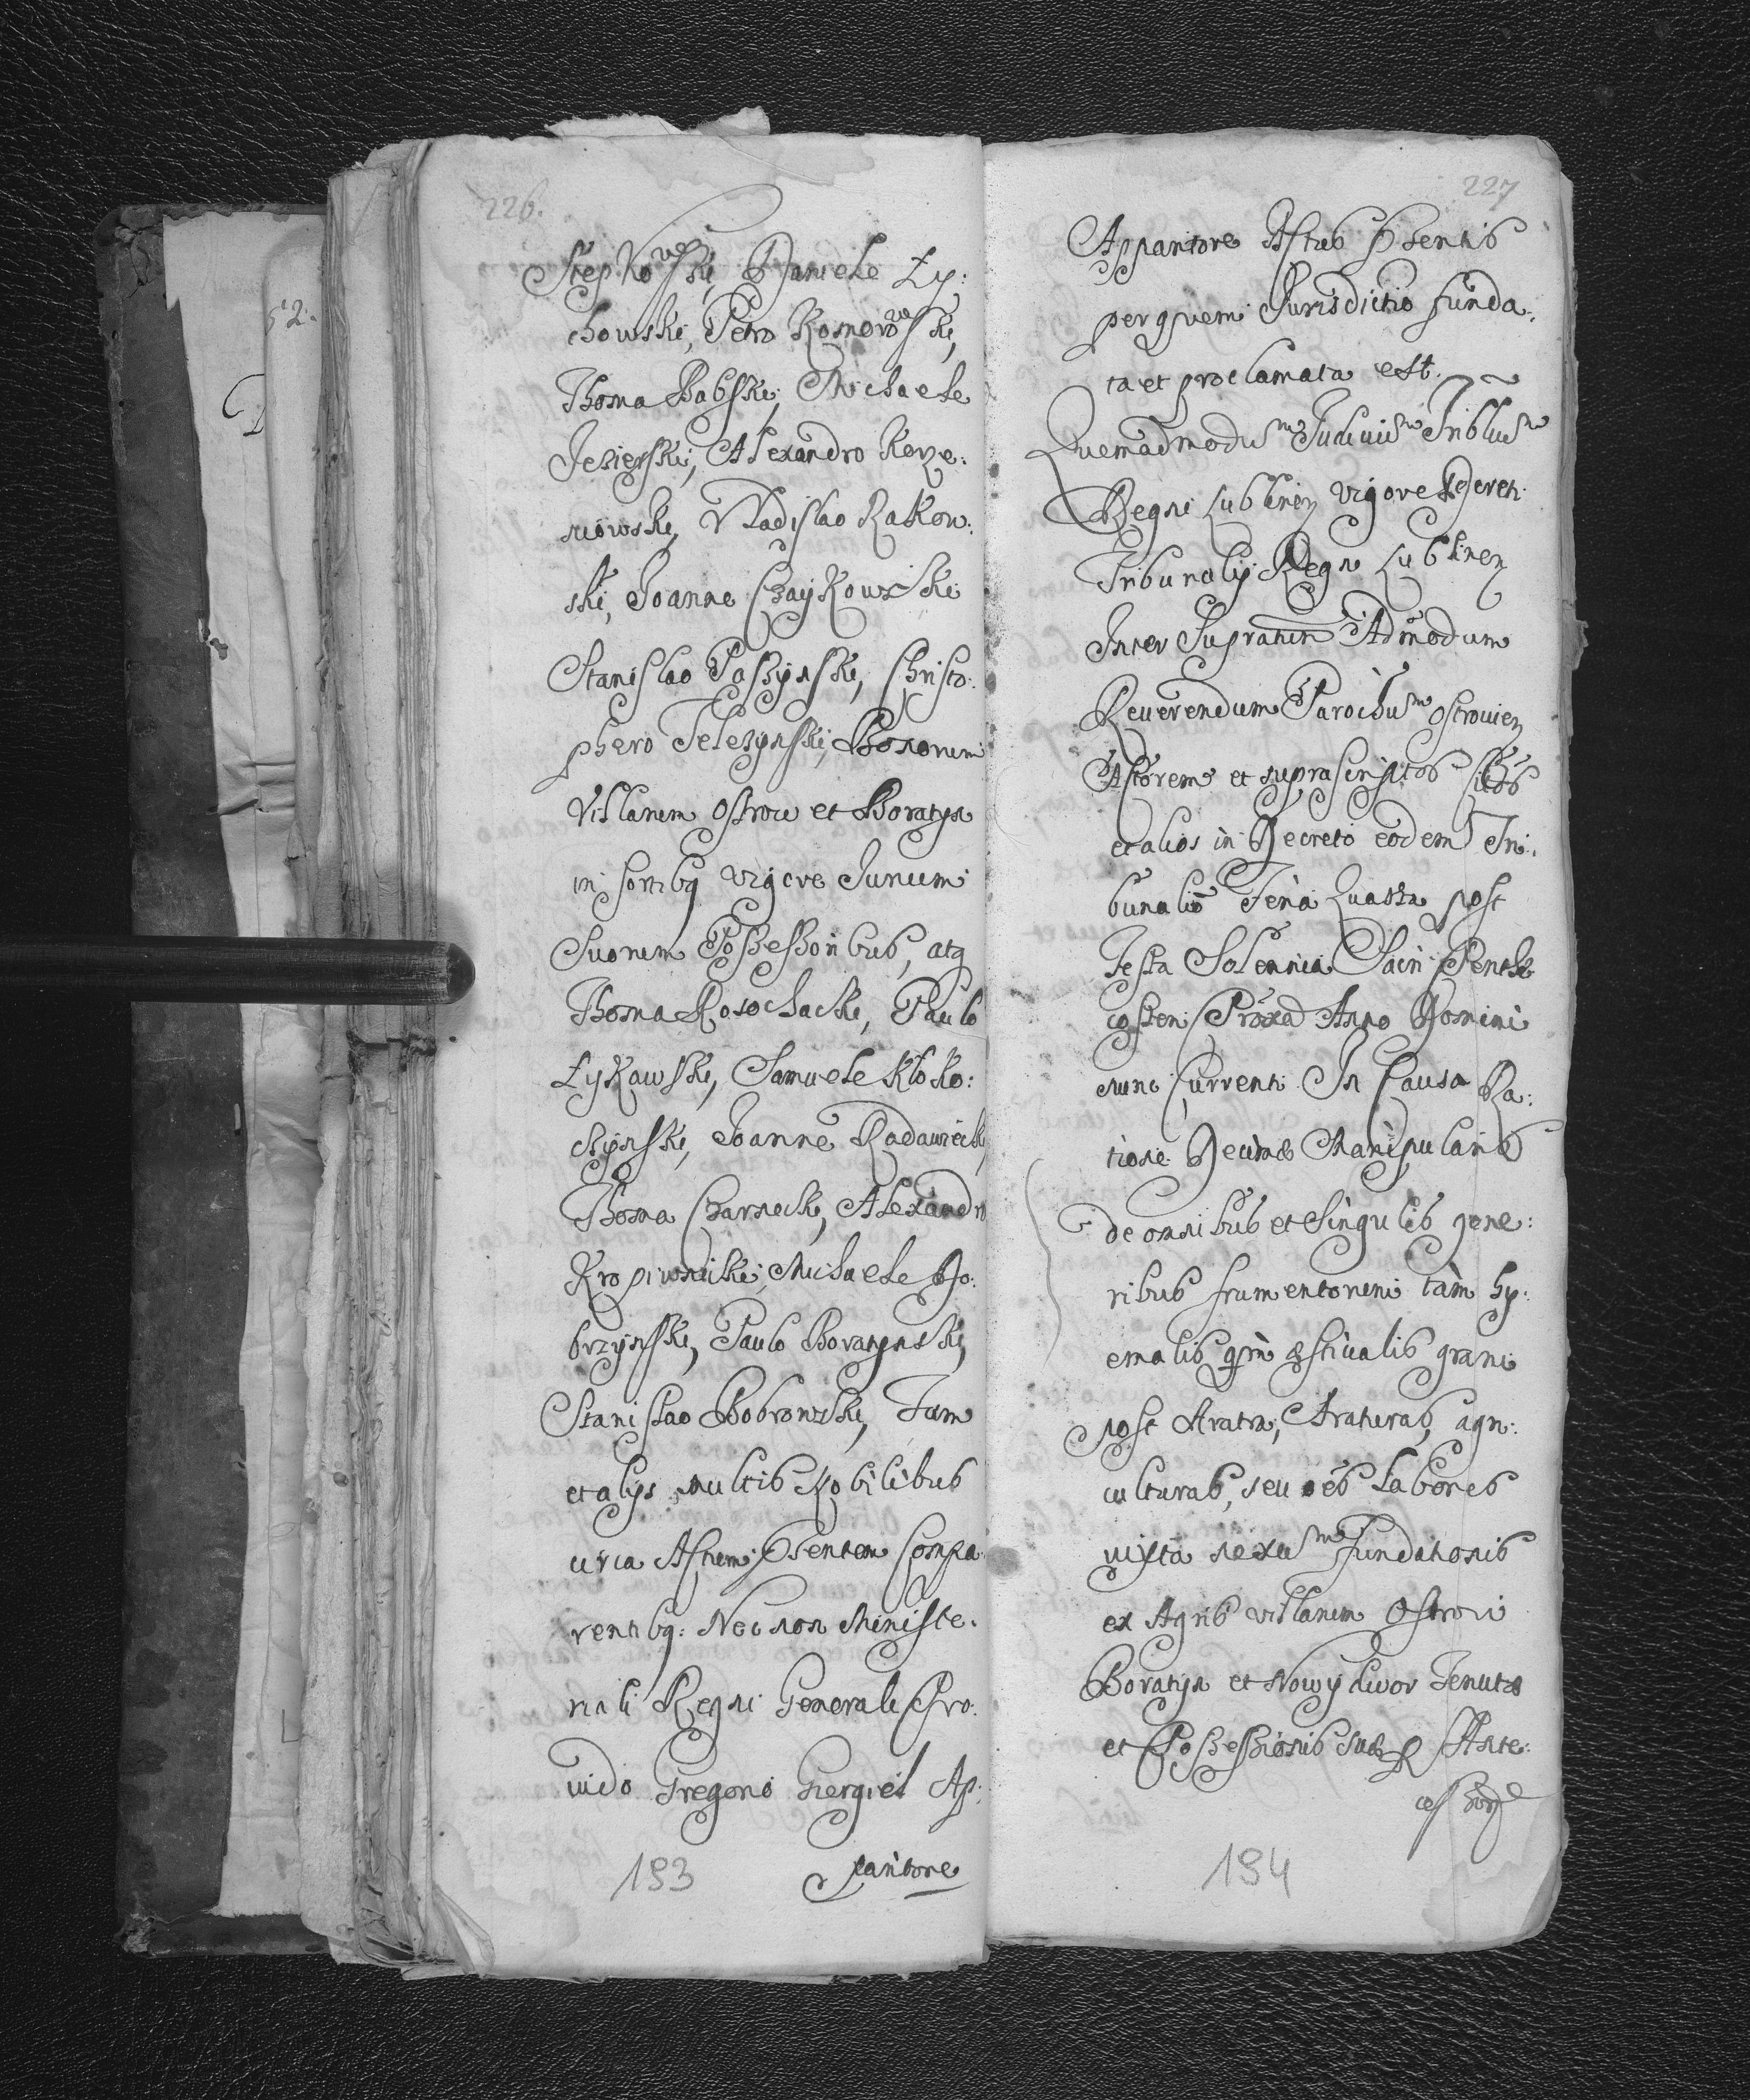 226.
Stepkowski, Daniele Ły:
chowski, Petro Komorowski,
Thoma Babski, Michaele
Jezierski, Alexandro Korze:
niowski, Vladislao Rakow:
ski, Joanne Czaykowski
Stanislao Paszynski, Christo:
phero Teleżynski, Bonorum
Villarum Ostrow et Boratyn
in sortibq vigore Jurium
Suorum Possessoribus, atq
Thoma Rosochacki, Paulo
Łykawski, Samuele Kłoko:
czynski, Joanne Radawiecki,
Thoma Czarnecki, Alexandro
Kropiwnicki, Michaele Do:
brzynski, Paulo Boratynski,
Stanislao Bobrowski, Tum
et alys multis Nobilibus
circa Actum Psentem Compa:
rentibq: Nec non Ministe:
riali Regni Generali Pro:
vido Gregorio Giergiel Ap:
paritore
193
227
Apparitore Actus Psentis
per quem Jurisdictio funda:
ta et proclamata est.
Quemadmodum Judicium Triblum
Regni Lublinen vigore Decreti
Tribunalij Regni Lublinen
Inter Supratum Admodum
Reverendum Parochum Ostrovien
Actorem et suprascriptos Cittos
et alios in Decreto eodem Tri:
bunali Feria Quarta post
Festa Solennia Sacri Pente
costen Proxa Anno Domini
nunc Currenti In Causa Ra:
tione Decimæ Manipularis
de omnibus et singulis gene:
ribus frumentorum tàm hy:
emalis qm æstivalis grani
post Aratra, Araturas, agri:
culturas, seu oēs Labores
iuxta nexum Fundationis
ex Agris villarum Ostrow
Boratyn et Nowydwor Tenutæ
et Possessionis suæ P Ante:
cessores
194